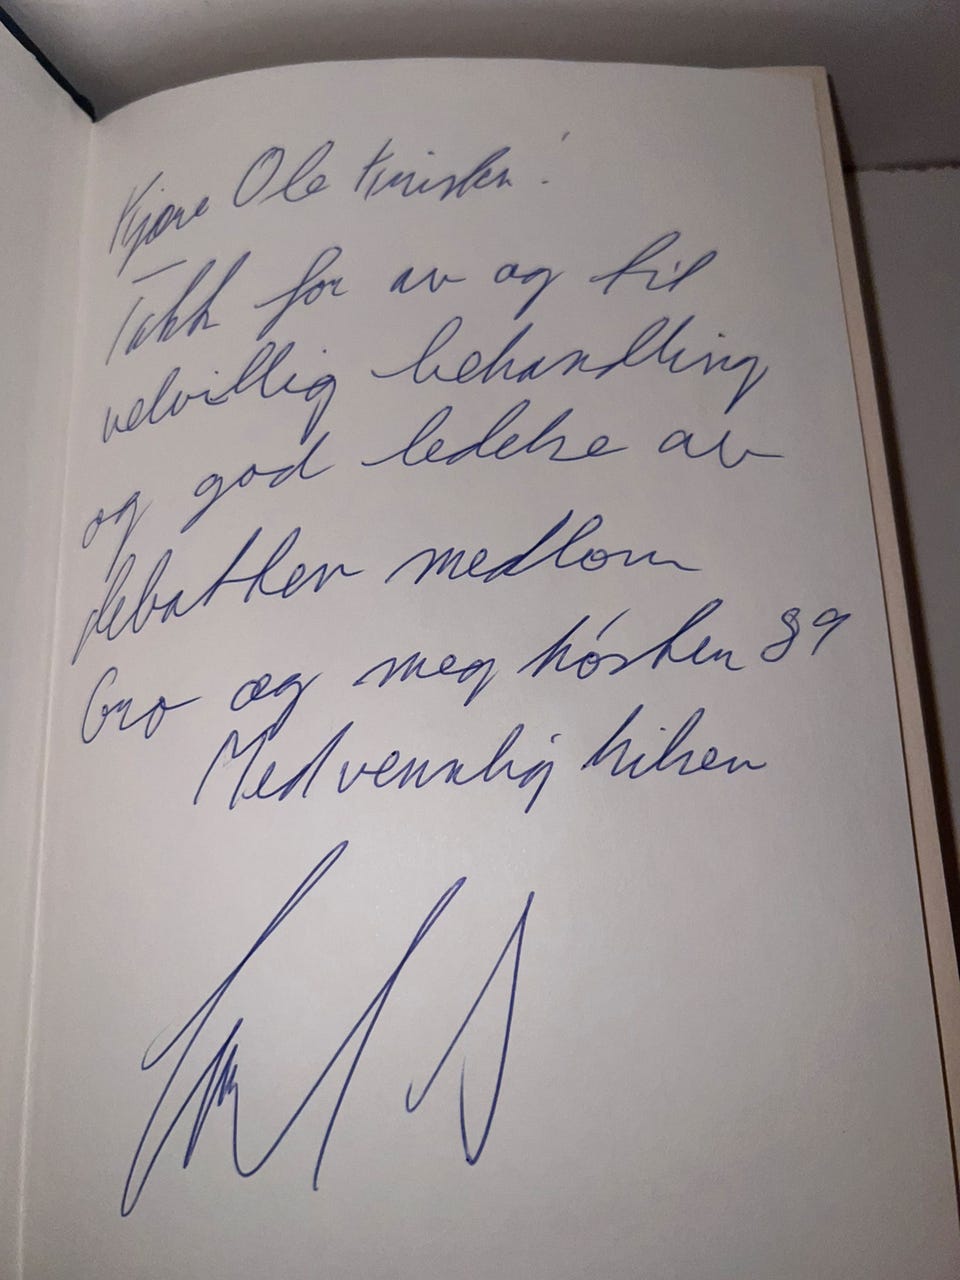 Kjære Ole Kristen!
Takk for av og til
velvillig behandling
og god ledelse av
debatten mellom
Gro og meg høsten 89
Med vennlig hilsen